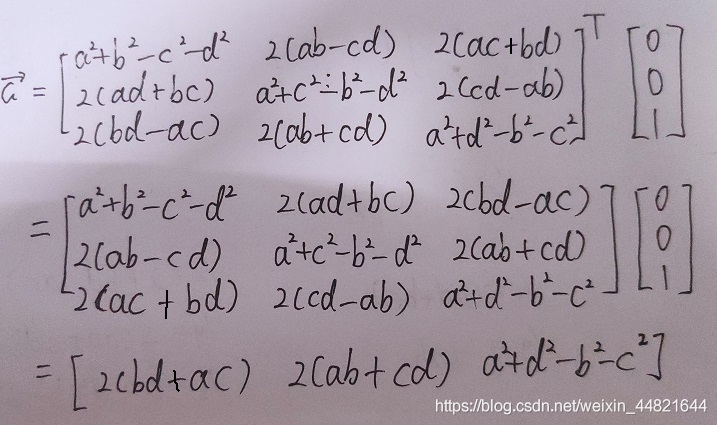 a²+b²-c²-d² 2(ab-cd) 2(ac+bd) T 0
a⃗ = [ 2(ad+bc) a²+c²-b²-d² 2(cd-ab) ] [ 0 ]
2(bd-ac) 2(ab+cd) a²+d²-b²-c² 1
a²+b²-c²-d² 2(ad+bc) 2(bd-ac) 0
= [ 2(ab-cd) a²+c²-b²-d² 2(ab+cd) ] [ 0 ]
2(ac+bd) 2(cd-ab) a²+d²-b²-c² 1
= [ 2(bd+ac) 2(ab+cd) a²+d²-b²-c² ]
https://blog.csdn.net/weixin_44821644